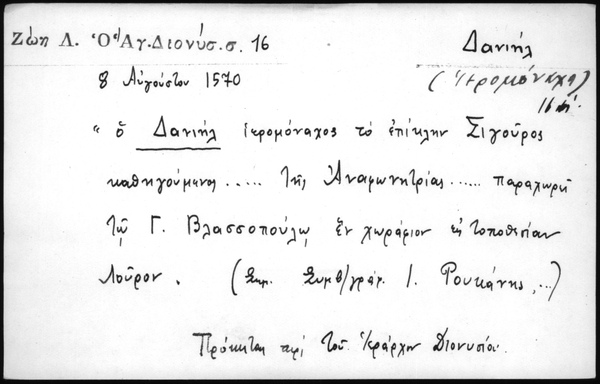 Ζώη Λ. Ὁ Ἅγ. Διονύσ. σ. 16
Δανιήλ
(Ἱερομόναχος)
8 Αὐγούστου 1570
" ὁ Δανιήλ ἱερομόναχος τὸ ἐπίκλην Σιγοῦρος
καθηγούμενος ..... τῆς Ἀναφωνητρίας ...... παραχωρεῖ
τῷ Γ. Βλασσοπούλῳ ἓν χωράφιον εἰς τοποθεσίαν
Λοῦρον. (Σημ. Συμβ/γράφ. Ι. Ρουκάνης,...)
Πρόκειται περί τοῦ Ἱεράρχου Διονυσίου.